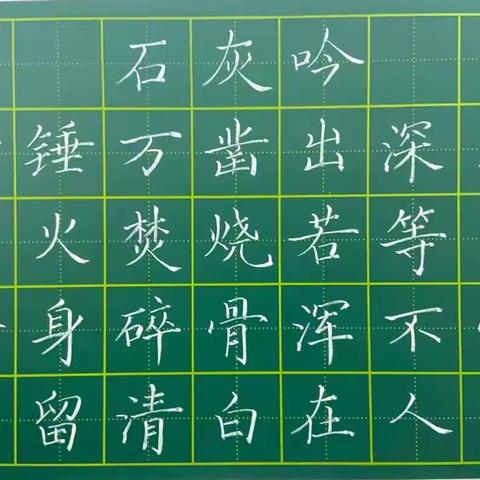 石灰吟
锤万凿出深
火焚烧若等
身碎骨浑不
留清白在人